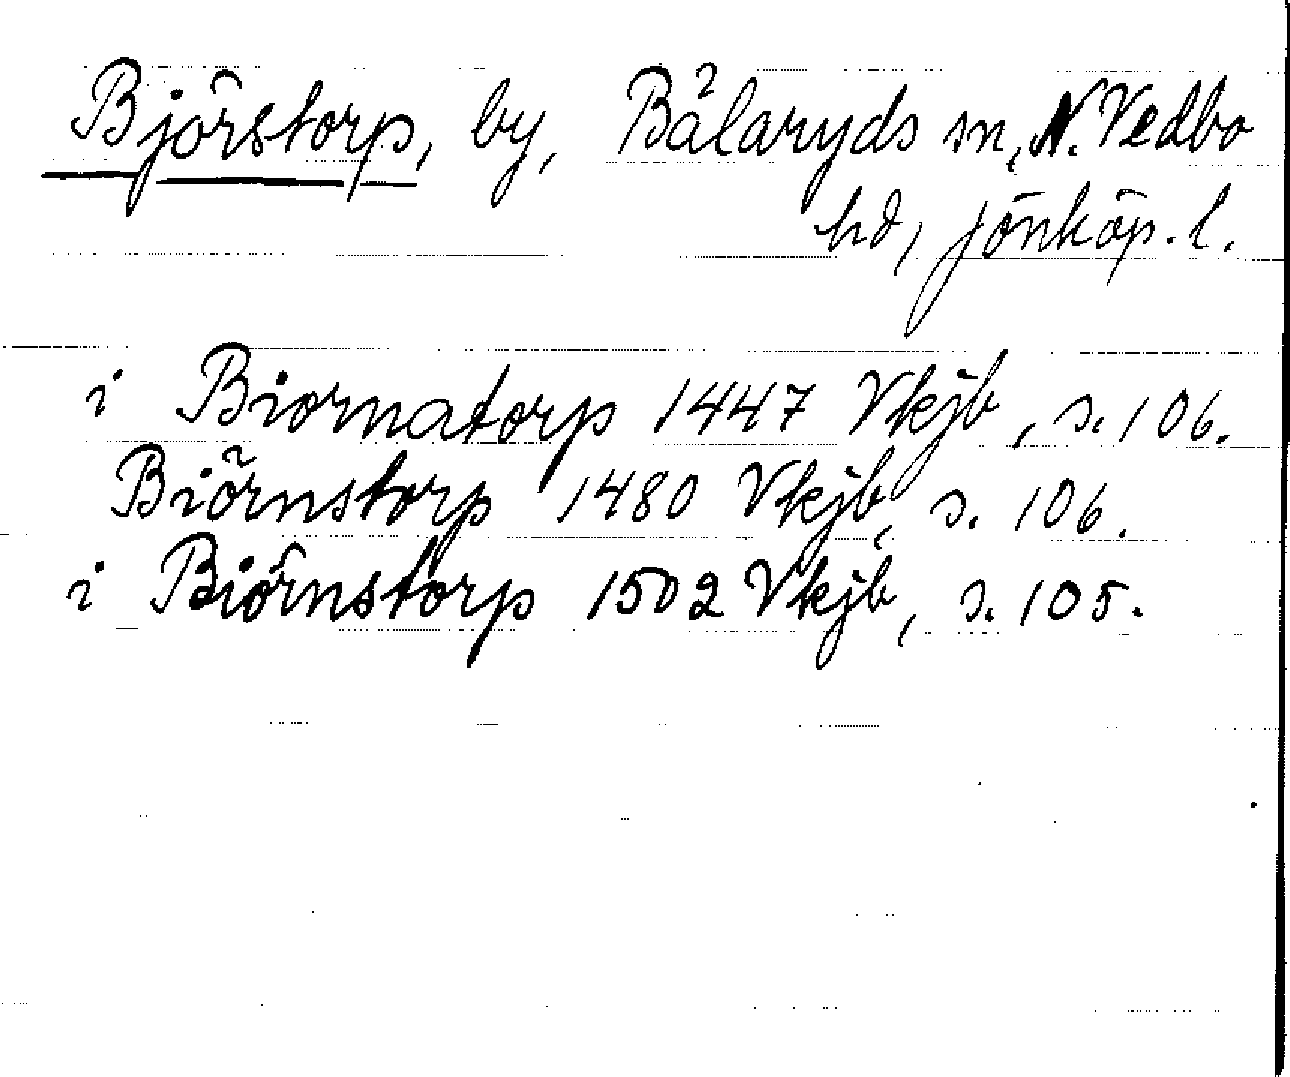 Björstorp, by, Bälaryds sn, N. Vedbo
hd, Jönköp. l.
i Biornatorp 1447 Vkjb, s. 106.
Biörnstorp 1480 Vkjb, s. 106.
i Biörnstorp 1502 Vkjb, s. 105.